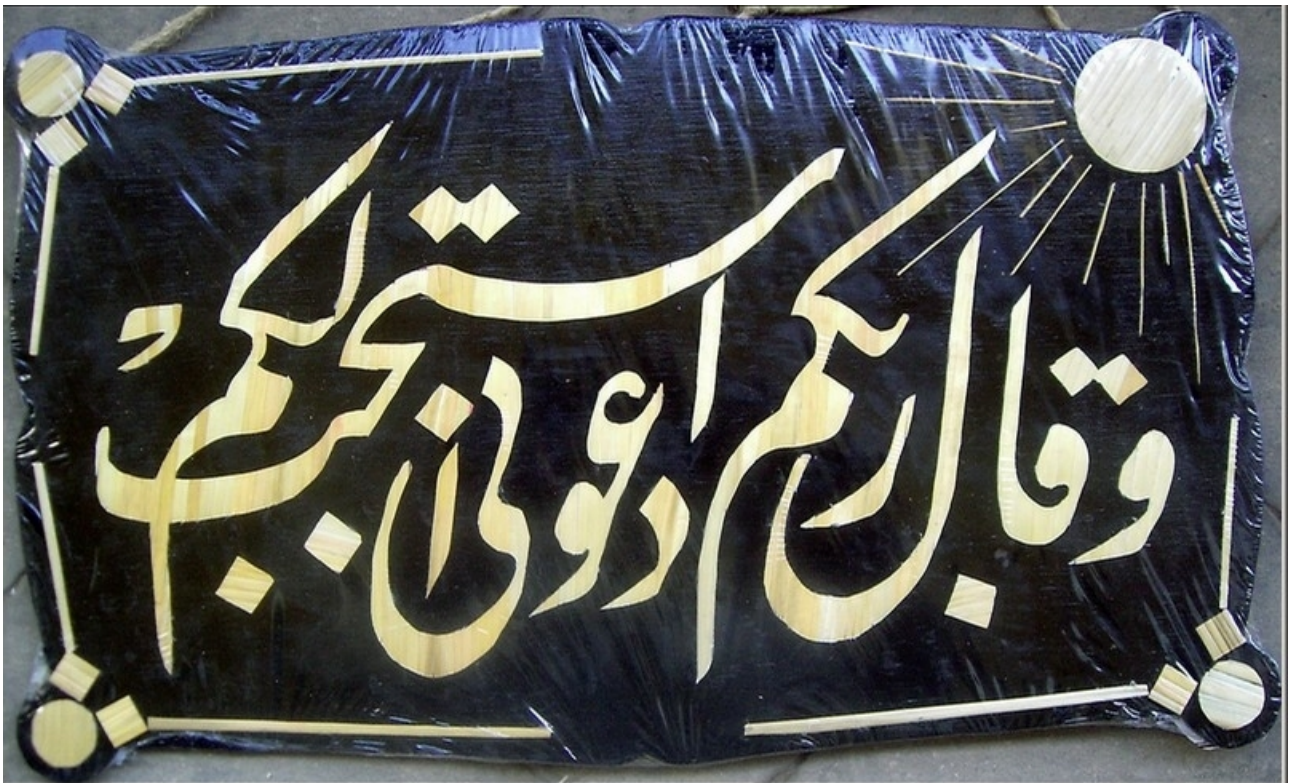 وقال ربكم ادعونی استجب لکم